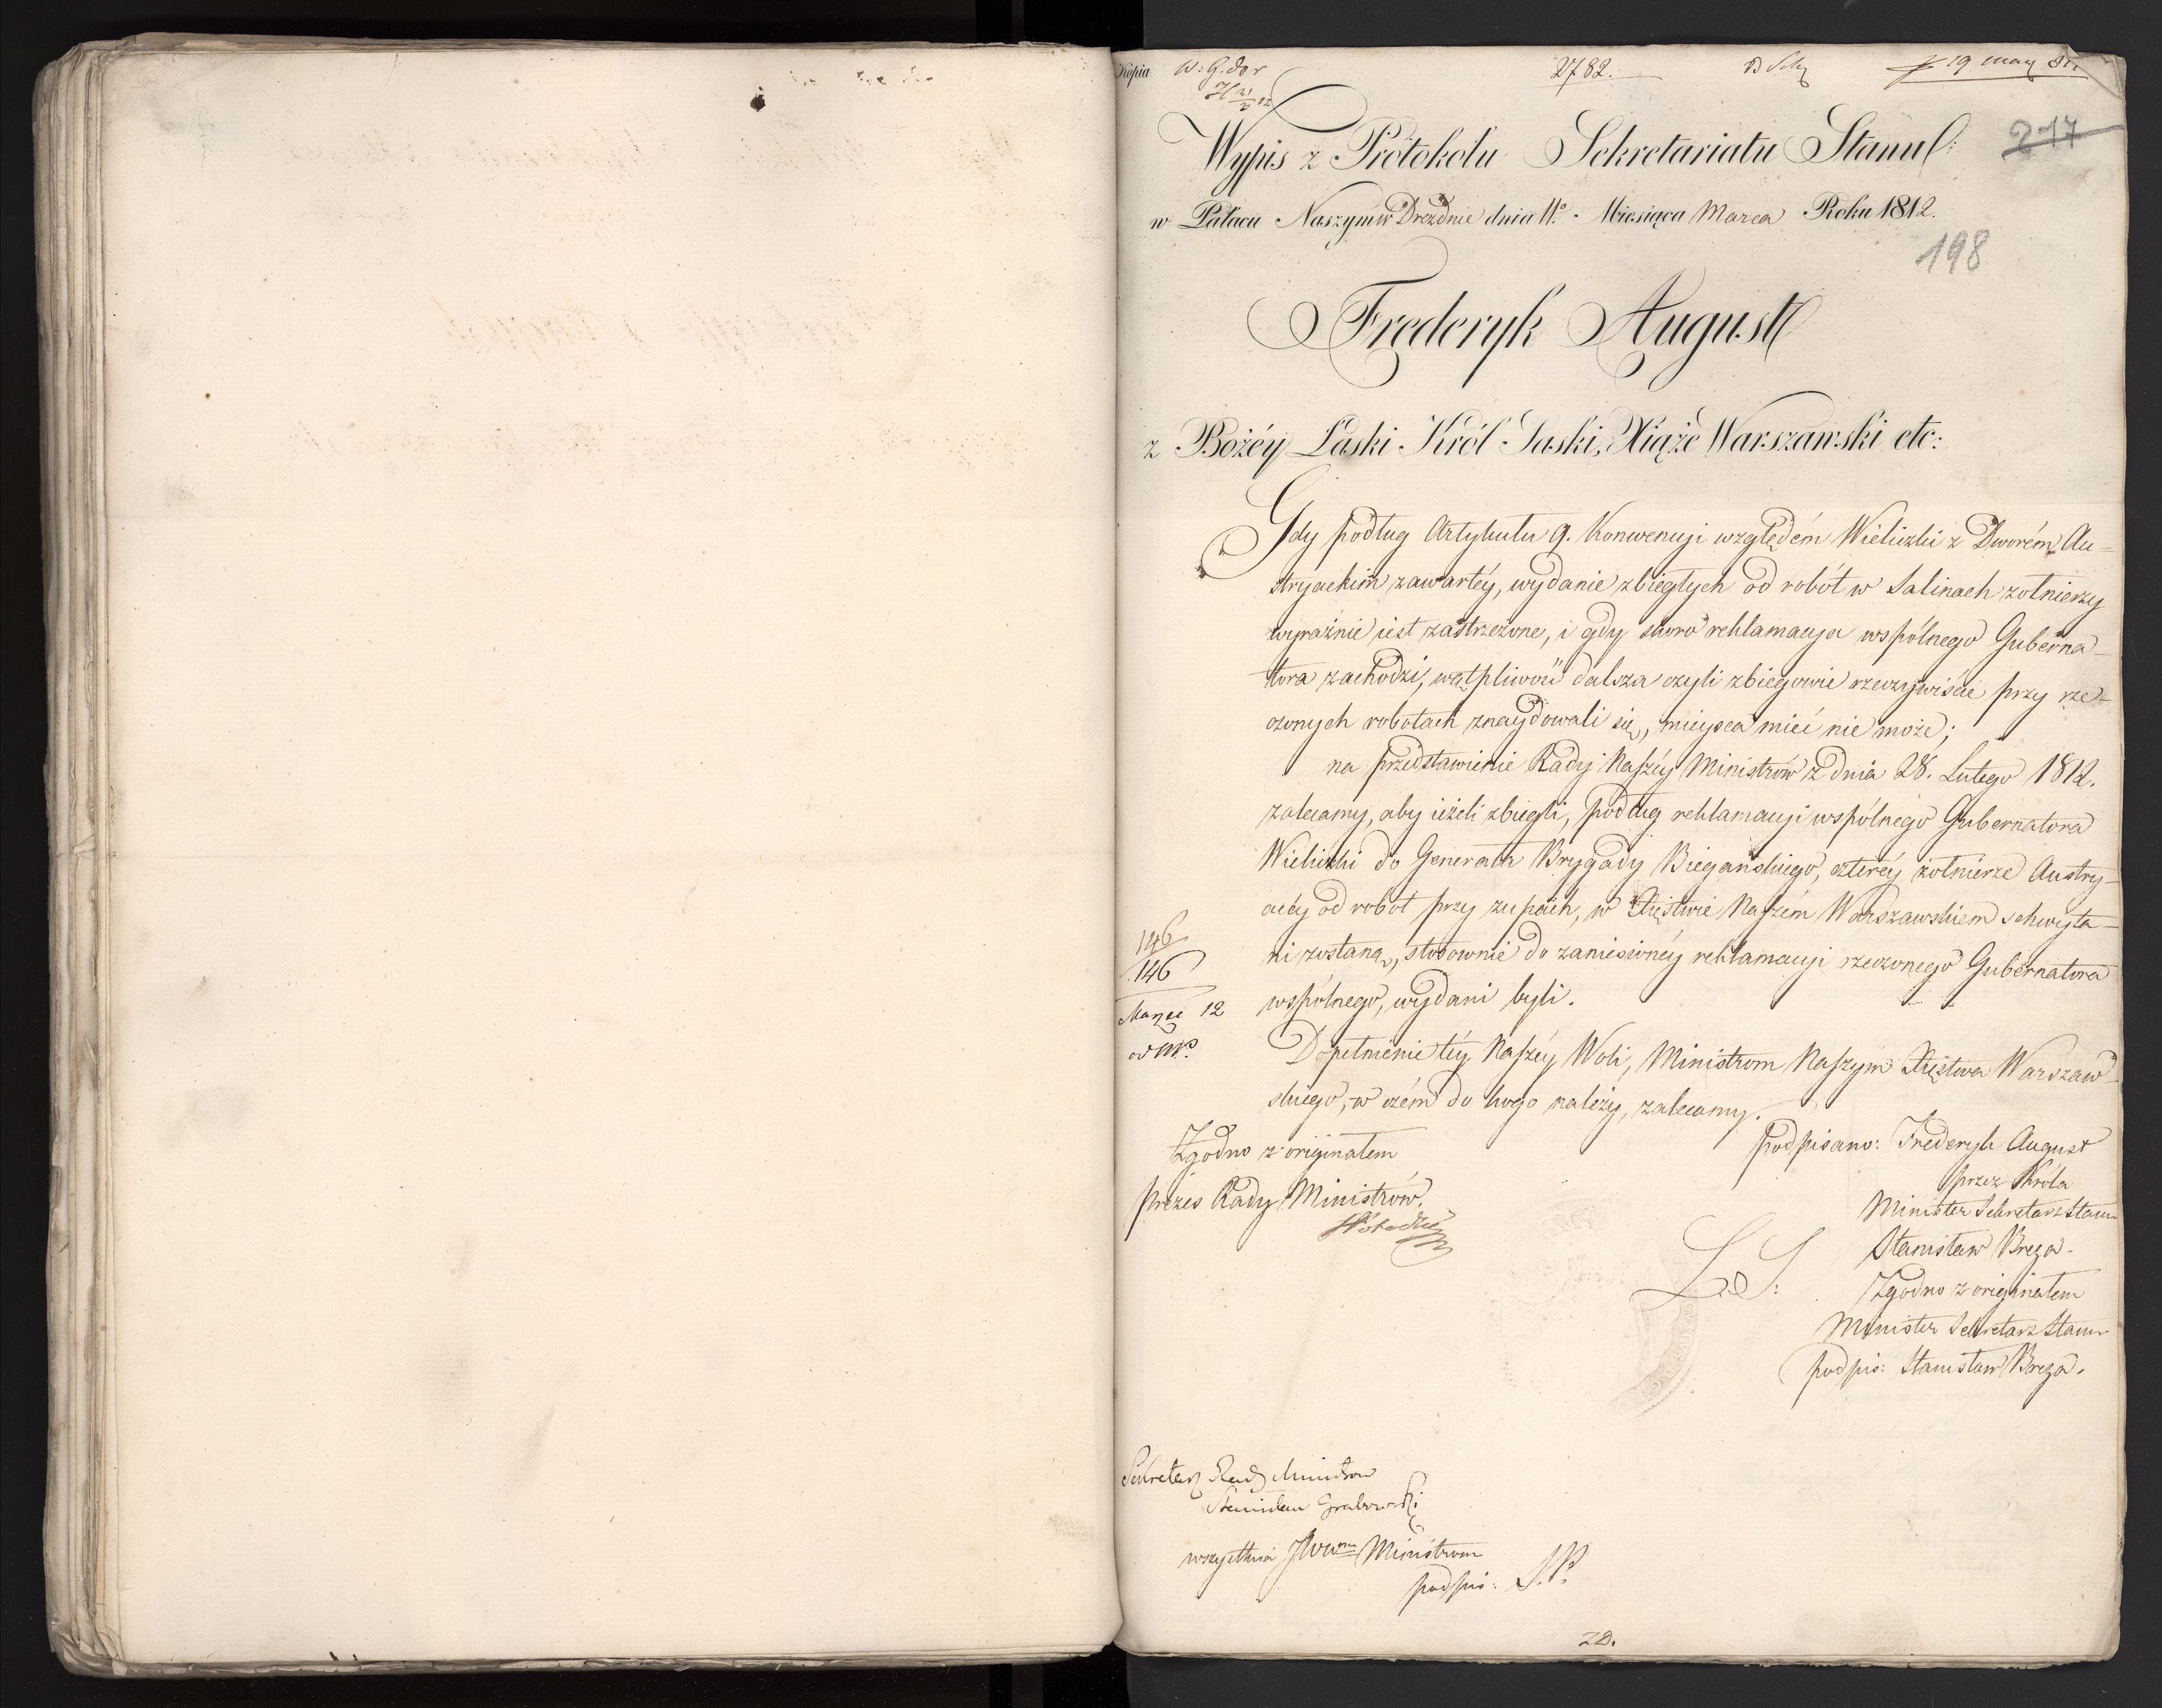 Kopia W: G. dor 2782. 19 may
Wypis z Protokołu Sekretariatu Stanu: 217
w Pałacu Naszym w Dreznie dnia 11º. Miesiąca Marca Roku 1812.
198
Frederyk August
z Bożéy Łaski Król Saski, Xiążę Warszawski etc:
Gdy podług Artykułu 9. Konwencyi względém Wieliczki z Dworém Au=
stryackim zawartéy, wydanie zbiegłych od robót w Salinach zołnierzy
wyraźnie iest zastrzeżone, i gdy skoro reklamacya wspólnego Guberna-
tora zachodzi, wątpliwość dalsza czyli zbiegowie rzeczywiście przy rze-
czonych robotach znaydowali się, mieysca mieć nie może;
na przedstawienie Rady Naszéy Ministrów z dnia 28. Lutego 1812.
zalecamy, aby ieżeli zbiegli, podług reklamacyi wspólnego Gubernatora
Wieliczki do Generała Brygady Biegańskiego, czteréy żołnierze Austry-
accy od robót przy zupach, w Xięstwie Naszém Warszawskiem schwyta-
ni zostaną, stosownie do zaniesionéy reklamacyi rzeczonego Gubernatora
wspólnego, wydani byli.
146
146
Marzec 12
od MP.
Dopełnienie téy Naszéy Woli, Ministrom Naszym Xięstwa Warszaw-
skiego, w czém do kogo należy, zalecamy.
Zgodno z originałem
Prezes Rady Ministrów.
podpisano: Frederyk August
przez Króla
Minister Sekretarz Stanu
Stanisław Breza.
L. S:
Zgodno z originałem
Minister Sekretarz Stanu
podpis: Stanisław Breza.
Sekretarz Rady Ministrow
Stanisław Grabowski
wszystkim JWWnn Ministrom
podpis: S. P.
28.